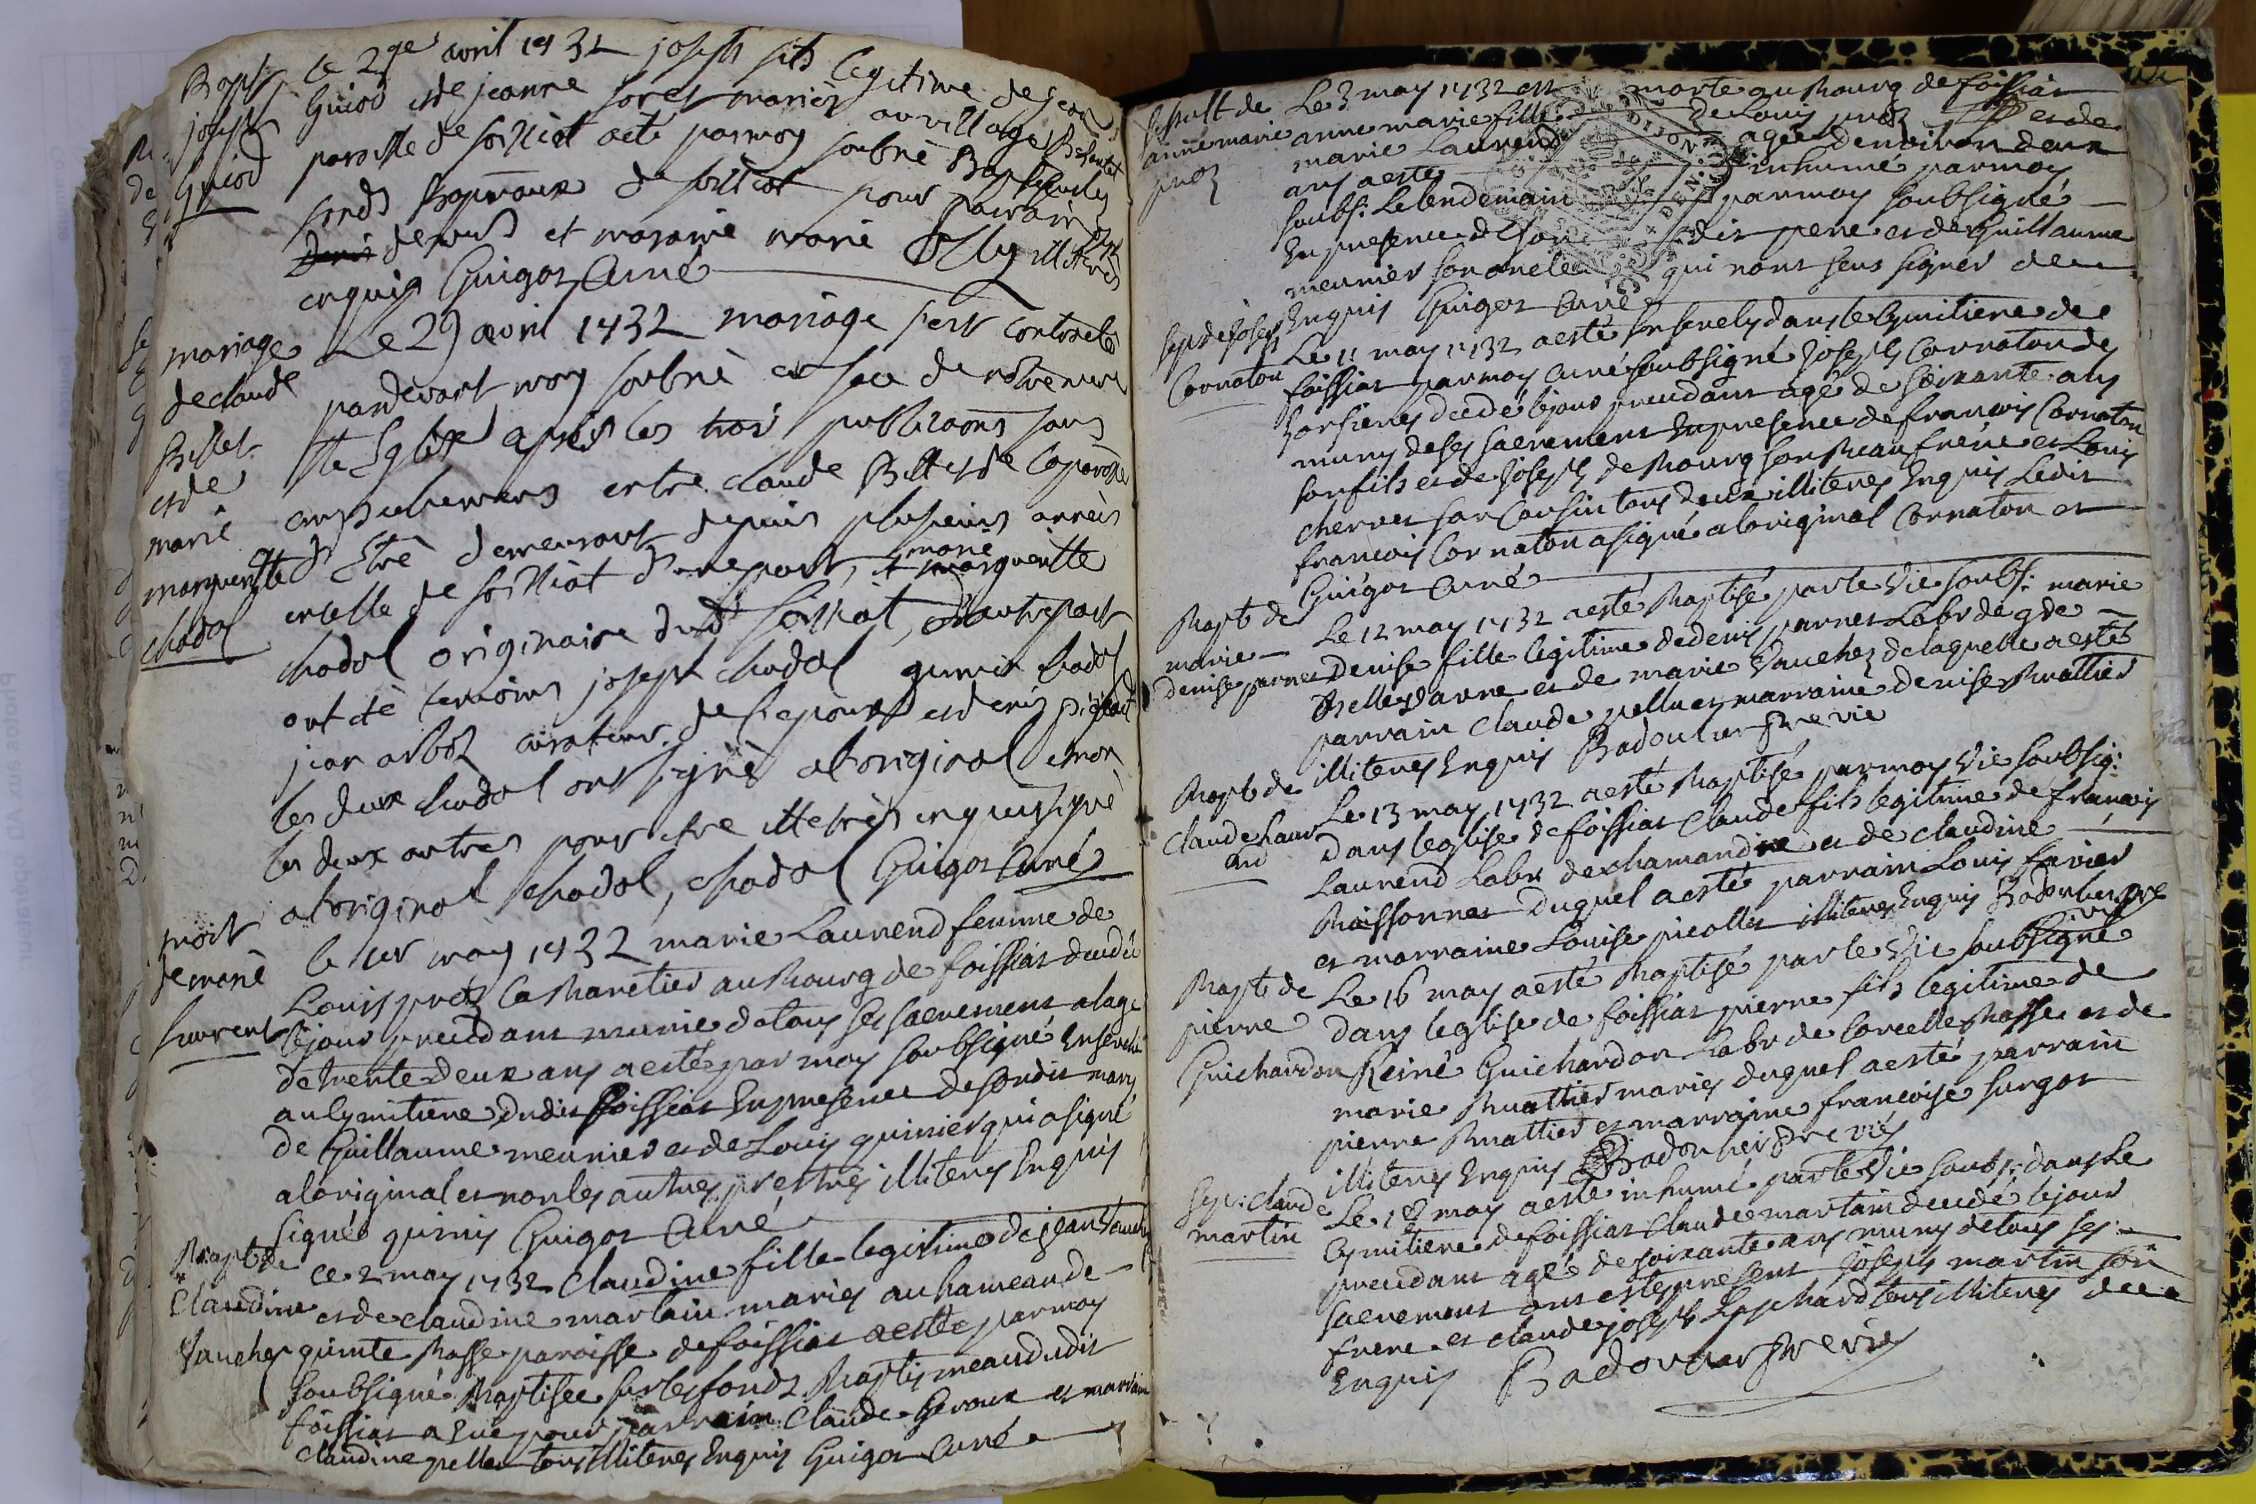 Bapt
joseph
Guiod
le 29e avril 1732 joseph fils legitime de jean
Guiod et de jeanne mariés au village
paroisse de foissiat a eté par moy soubnè Baptisé
fonds Baptismaux de foissiat pour parain
et maraine marie illiterés
enquis Guigot Curé
mariage
de claude
Billet
et de
marie
margueritte
chadal
Le 29 avril 1732 mariage s'est contractè
pardevant moy soubnè en face de notre mere
Ste Eglise après les trois publicaõns sans
empechemens entre claude Billet de la paroisse
d'Etrè demeurant depuis plusieurs années
en celle de foissiat d'une part, et marie margueritte
chadal originaire dudt foissiat, d'autre part
ont eté temoins joseph chadal chadal
jean arboz curateur de l'epouse et denis
les deux chadal ont signè a l'original et non
les deux autres pour etre illetrès enquis signè
a l'original chadal, chadal Guigot Curé
mort
de marie
laurent
le 1er may 1732 marie Laurend femme de
Louis proz Cabaretier au Bourg de foissiat decedée
le jour precedant munie de tous ses sacremens a lage
de trente deux ans a esté par moy soubsigné Enseveli
au Cymitiere dudit foissiat En presence de son dit mary
de Guillaume meunier et de Louis quinier qui a signé
a loriginal et non les autres pr estres illiteres Enquis
Signé quinis Guigot Curé
Bapt de
Claudine
Vaucher
Ce 2 may 1732 Claudine fille legitime de jean Vaucher
et de claudine martain mariés au hameau de
quinte Basse paroisse de foissiat a esté par moy
soubsigné Baptisée sur les fondz Baptismeaux dudit
foissiat a Eu pour parrain Claude Geroux et marraine
Claudine pellet tous illiteres Enquis Guigot Curé
Sepult de
anne marie
proz
Le 3 may 1732 est morte au Bourg de foissiat
anne marie fille de Louis proz et de
marie Laurend agée denviron deux
ans a esté inhumé par moy
soubs: Le lendemain par moy soubsigné
En presence de son dit pere et de Guillaume
meunier son oncle qui nont sceus signer de
Enquis Guigot Curé
Sep de joseph
Cornaton
Le 11 may 1732 a esté Ensevely dans le Cymitiere de
foissiat par moy curé soubsigné joseph Cornaton de
decedé le jour precedant agé de soixante ans
muny de ses sacremens En presence de francois Cornaton
son fils et de joseph de Bourg son Beau frere et Louis
chernet son Cousin tous deux illiteres Enquis Ledit
francois Cornaton a signé a loriginal Cornaton et
Guigot Curé
Bapt de
marie
denise parnet
Le 12 may 1732 a esté Baptisé par le Vic soubs: marie
Denise fille legitime de denis parnet Labr de gde
et de marie Vaucher de laquelle a esté
parrain Claude pelluet marraine denise Buattier
illiteres Enquis Badoulier Pre vic
Bapt de
Claude Laur
end
Le 13 may 1732 a esté Baptisé par moy Vic soubsig:
dans leglise de foissiat Claude fils legitime de francois
Laurend Labr de chamandre et de claudine
Boissonnet duquel a esté parrain Louis favier
et marraine Louise picollet illiteres Enquis Badoulier pre
Vic
Bapt de
pierre
Guichardon
Le 16 may a esté Baptisé par le Vic soubsigné
dans leglise de foissiat pierre fils legitime de
Reiné Guichardon Labr de Corcelle Basse et de
marie Buattier mariés duquel a esté parrain
pierre Buattier et marraine francoise surgot
illiteres Enquis Badoulier Pre vic
Sep: claude
martin
Le 18 may a esté inhumé par le Vic soubs: dans le
Cymitiere de foissiat Claude martain decedé le jour
precedant agé de soixante ans muny de tous ses
sacremens ont estes presens joseph martin son
frere et claude joseph tous illiteres de
Enquis Badoulier Pre vic